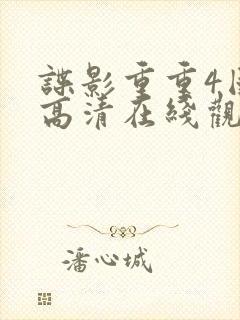 諜影重重4
高清在綫觀
潘心城